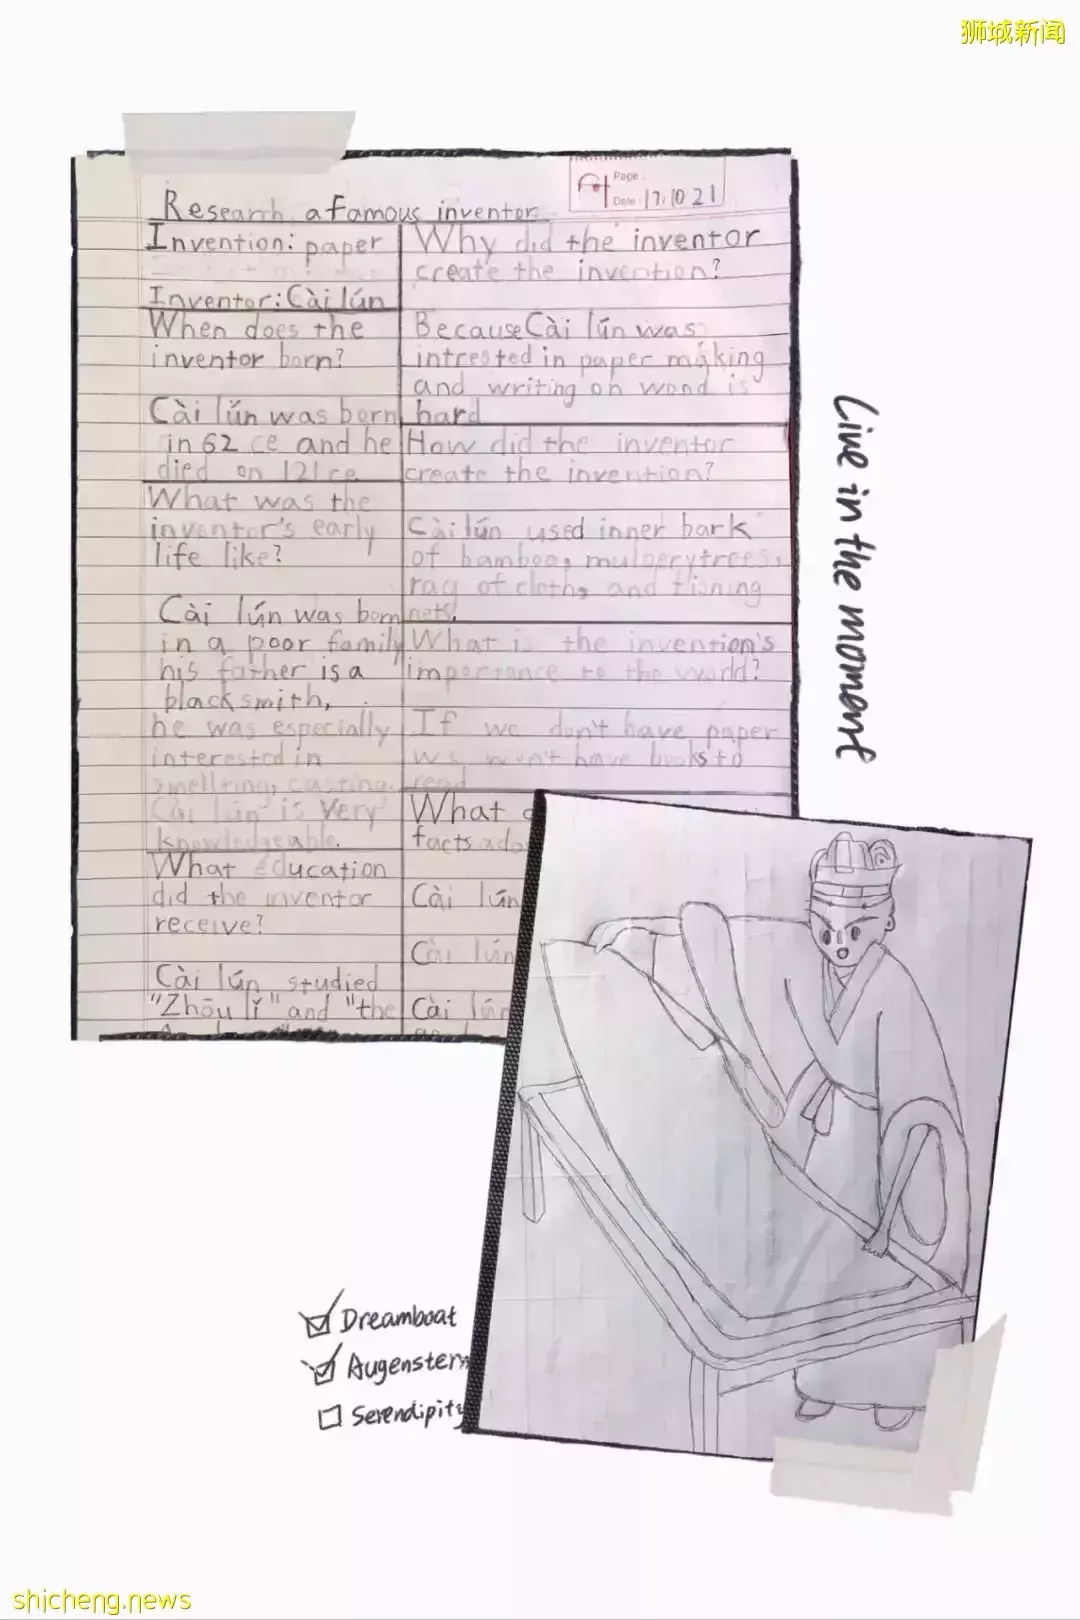 狮城新闻
Page:
Date: 17.10 21
Research a famous inventor
Invention: paper
Inventor: Cài lún
When does the
inventor born?
Cài lún was born
in 62 ce and he
died on 121 ce
What was the
inventor's early
life like?
Cài lún was born
in a poor family
his father is a
blacksmith,
he was especially
interested in
smelting, casting.
Cài lún is very
knowledgeable.
What Education
did the inventor
receive?
Cài lún studied
"Zhōu lǐ" and "the
Why did the inventor
create the invention?
Because Cài lún was
intrested in paper making
and writing on wood is
hard
How did the inventor
create the invention?
Cài lún used inner bark
of bamboo, mulberytrees,
rag of cloth, and fishing
nets.
What is the invention's
importance to the world?
If we don't have paper
we won't have books to
read
What
facts
Cài lún
Cài lún
Cài lún
Live in the moment
Dreamboat
Augenstern
Serendipity
shicheng.news